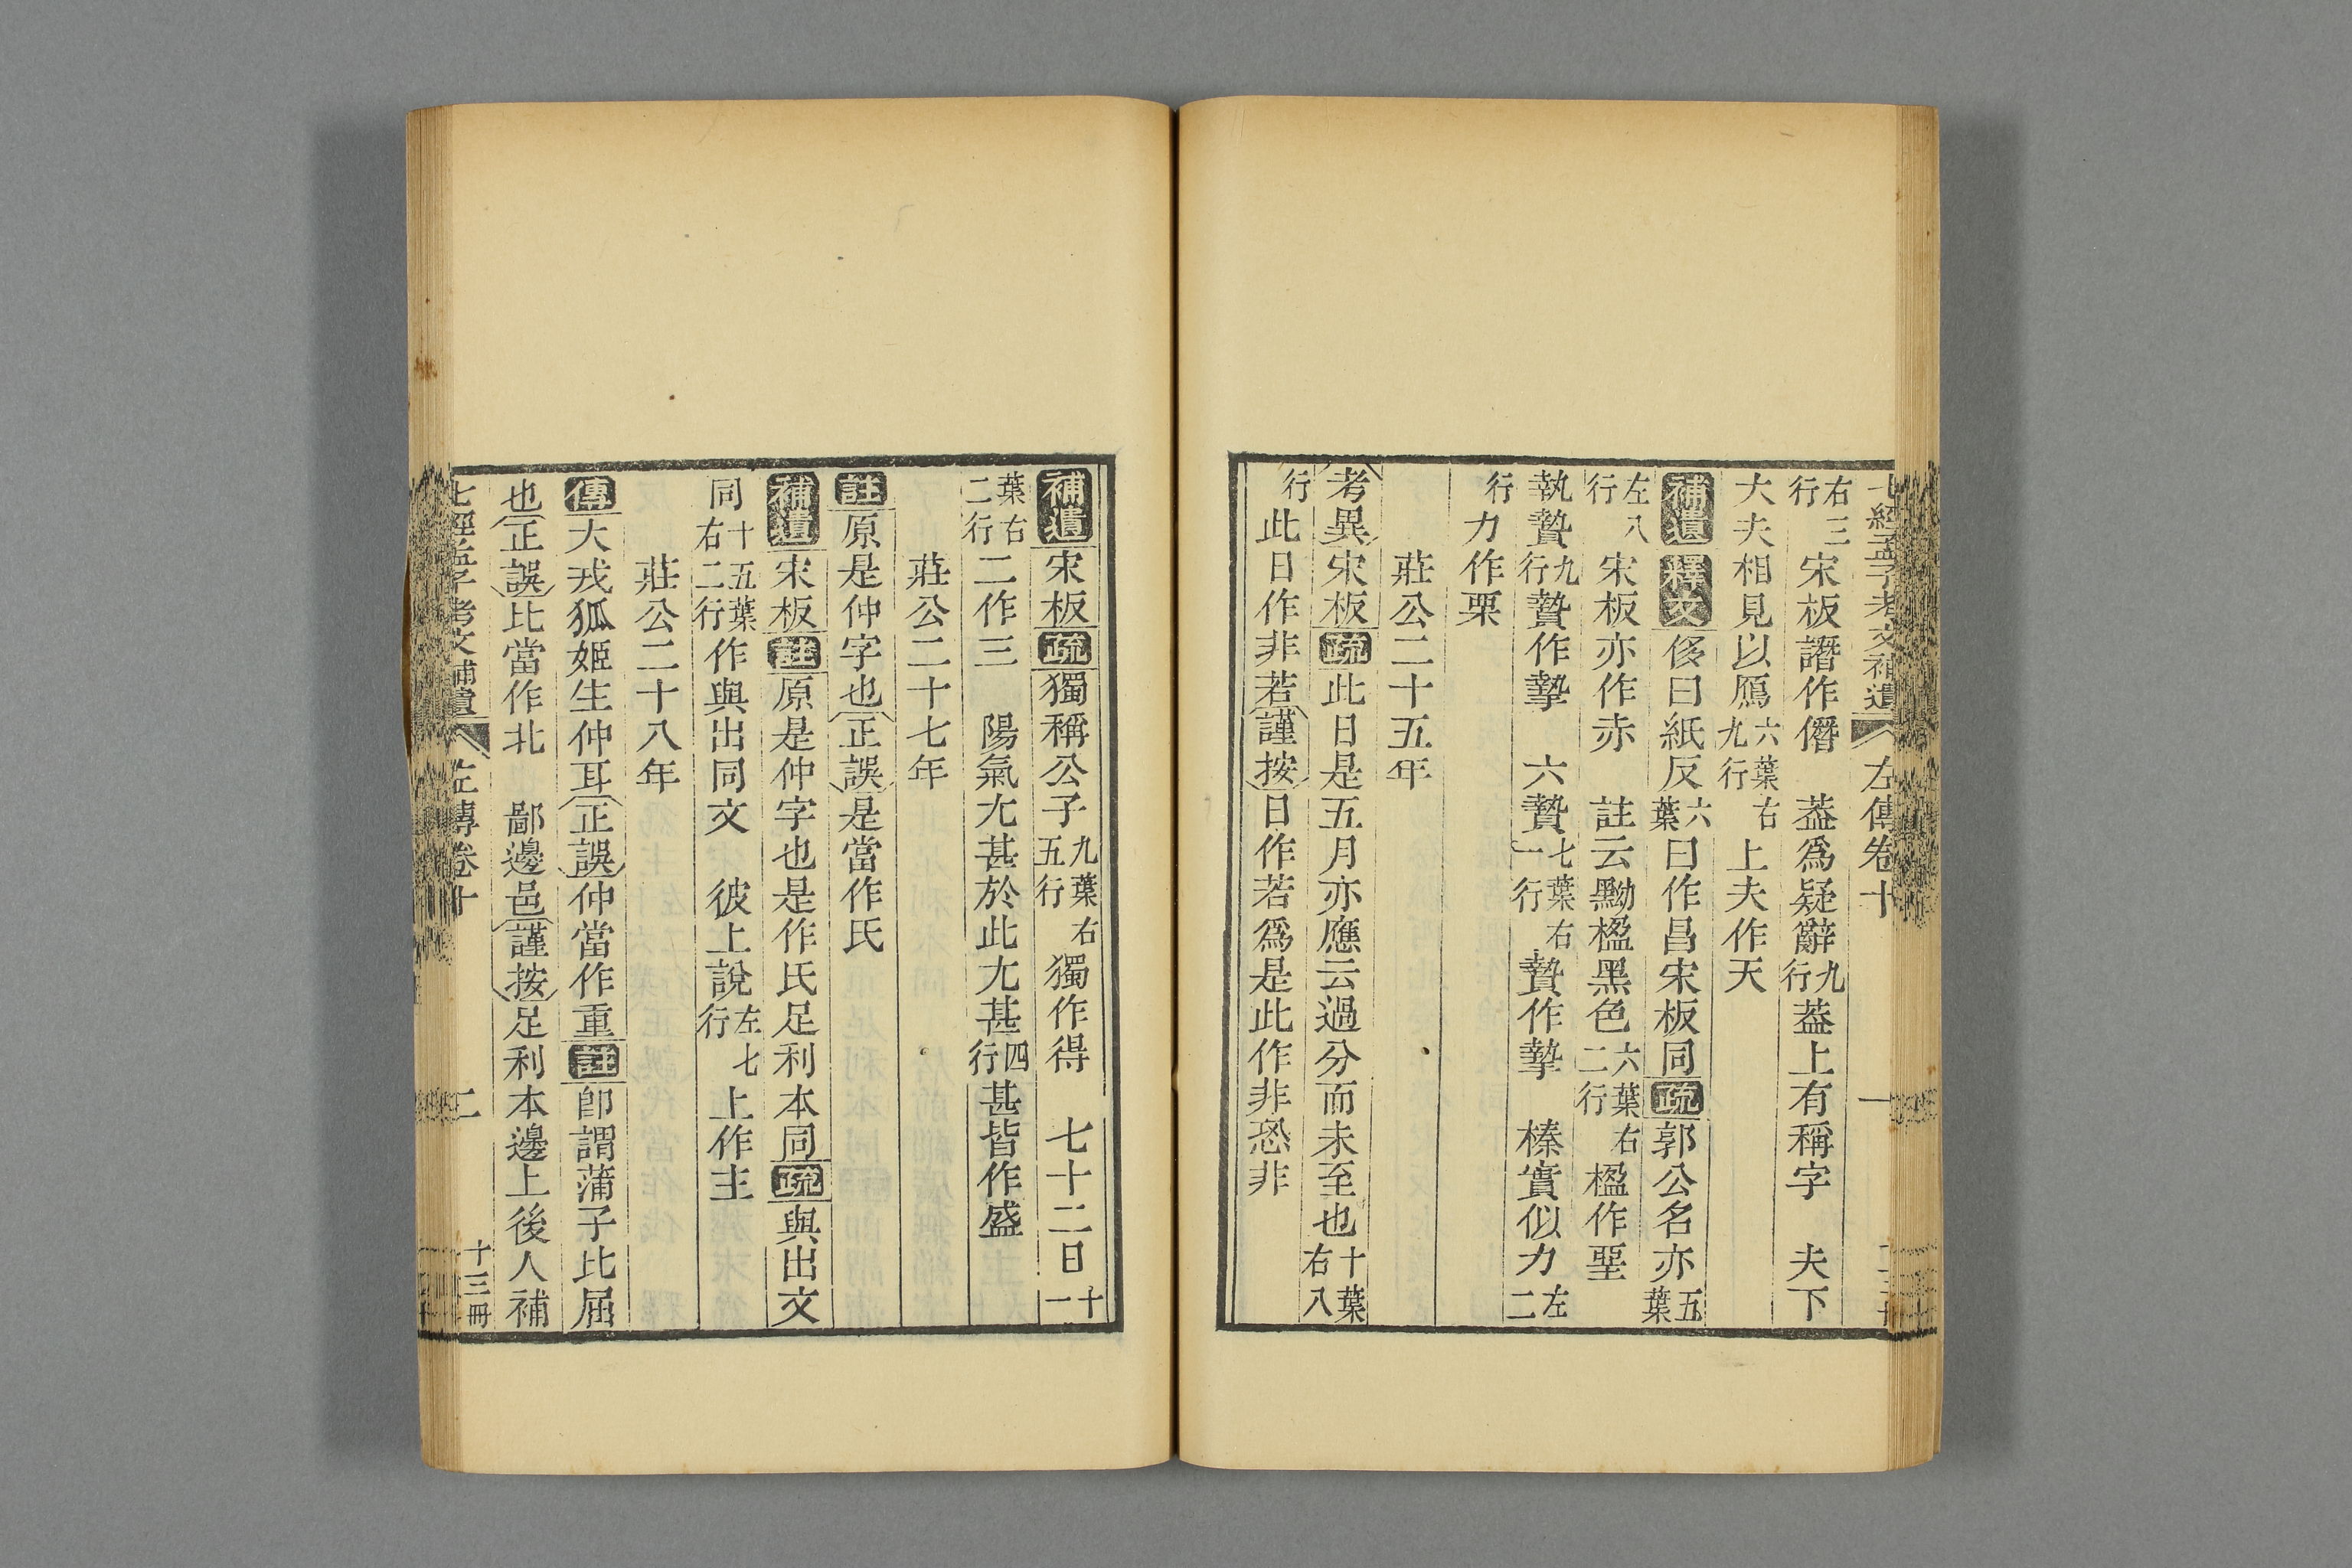 七經孟子考文補遺 左傳卷十 一
右三行宋板譖作僭 葢爲疑辭九行葢上有稱字 夫下
大夫相見以鴈六葉右九行上夫作天
補遺 釋文侈曰紙反六葉曰作昌宋板同疏郭公名亦五葉
左八行宋板亦作赤 註云黝楹黑色六葉右二行楹作堊
執贄九行贄作摯 六贄七葉右一行贄作摯 榛實似力左二
行力作栗
莊公二十五年
考異宋板疏此日是五月亦應云過分而未至也十葉右八
行此日作非若謹按日作若爲是此作非恐非
補遺宋板疏獨稱公子九葉右五行獨作得 七十二日十一
葉右二行二作三 陽氣尢甚於此尢甚四行甚皆作盛
莊公二十七年
註原是仲字也正誤是當作氏
補遺宋板註原是仲字也是作氏足利本同疏與出文
同十五葉右二行作與出同文 彼上說左七行上作主
莊公二十八年
傳大戎狐姬生仲耳正誤仲當作重註卽謂蒲子比屈
也正誤比當作北 鄙邊邑謹按足利本邊上後人補
七經孟子考文補遺 左傳卷十 二 十三冊